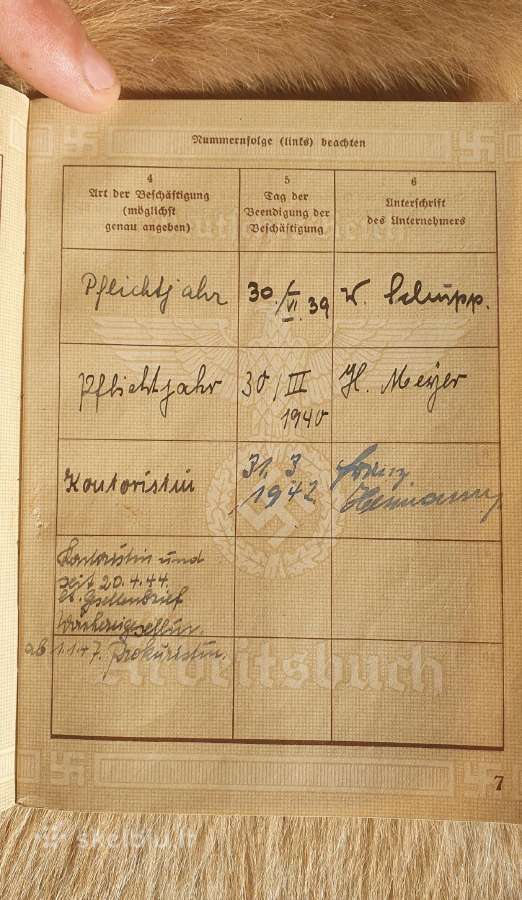 Nummernfolge (links) beachten
4
Art der Beschäftigung
(möglichst
genau angeben)
5
Tag der
Beendigung der
Beschäftigung
6
Unterschrift
des Unternehmers
Pflichtjahr
30./VI. 39
W. Schupp.
Pflichtjahr
30/III
1940
H. Meyer
Kontoristin
31. 3
1942
Franz
Hermann
Kontoristin und
seit 20.4.44.
lt. Gsellenbrief
ab 1.1.47. Prokuristin.
Arbeitsbuch
7
skelbiu.lt